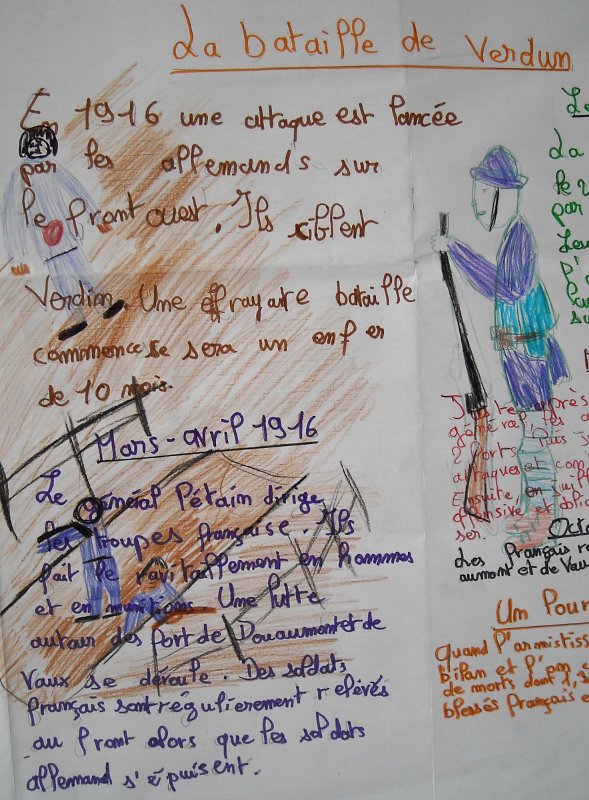 La bataille de Verdun
En 1916 une attaque est lancée
par les allemands sur
le front ouest. Ils ciblent
Verdun. Une effrayante bataille
commence se sera un enfer
de 10 mois.
Mars-avril 1916
Le général Pétain dirige
les troupes française. Ils
fait le ravitaillement en hommes
et en munitions. Une lutte
autour des fort de Douaumont et de
Vaux se déroule. Des soldats
français sont régulierement relevés
au front alors que les soldats
allemand s'épuisent.
Le
La
le
par
Leu
Juste après
général
2 forts puis
attaque et
Ensuite, en juill
offensive et
ser.
Octo
Les français re
aumont et de Vau
Um Pour
quand l'armistiss
bilan et l'on
de morts dont 1,3
blessés français e